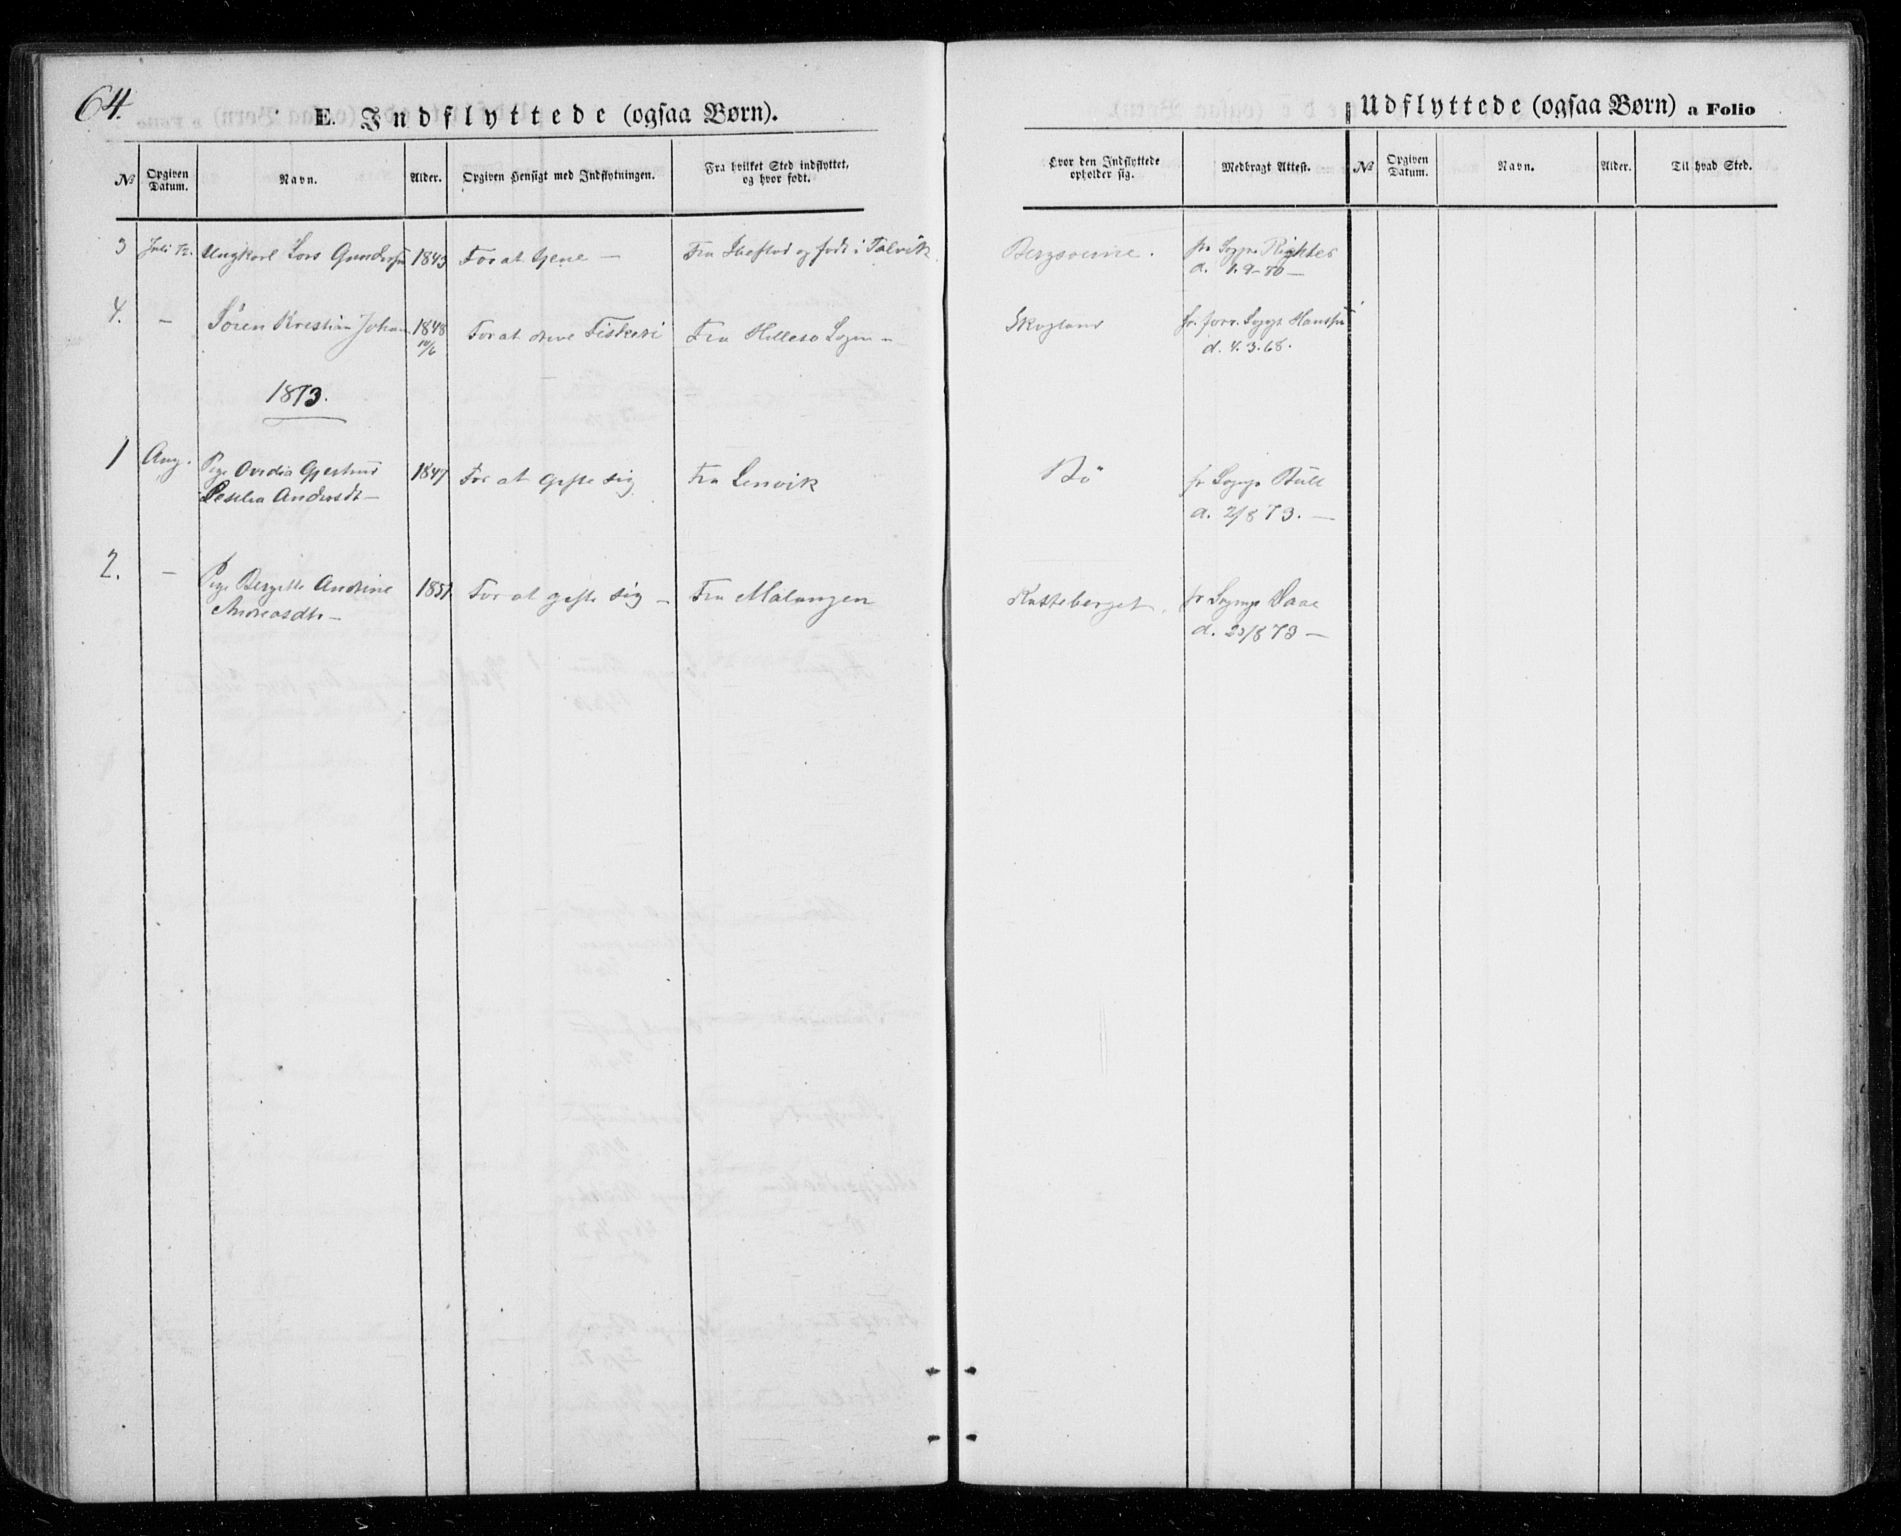 64.
E. Indflyttede (ogsaa Børn).
Udflyttede (ogsaa Børn) a Folio
№ Opgiven Datum. Navn. Alder. Opgiven Hensigt med Indflytningen. Fra hvilket Sted indflyttet, og hvor født. Hvor den Indflyttede opholder sig. Medbragt Attest. № Opgiven Datum. Navn. Alder. Til hvad Sted.
3 Juli 72. Ungkarl Lars 1843 For at tjene — Fra og født i Talvik Bergsverne. fr Sogpr Richter
d. 1.9-70 —
4. — Søren Kristian Johan 1848 For at drive Fiskeri Fra Hillesø Sogn Skogland fr. forr. Sogpr Hanssen
10/6 d. 4.3.68.
1873.
1 Aug. Pige Ovidia Gjertrud 1847 For at gifte sig Fra Lenvik Bø fr Sogpr Bull
Andersdt — d. 2/8 73. —
2. — Pige Bergette Andrine 1851 For at gifte sig — Fra Malangen Katteberget. fr Sognpr Daae
Andreasdtr — d. 23/8 73 —